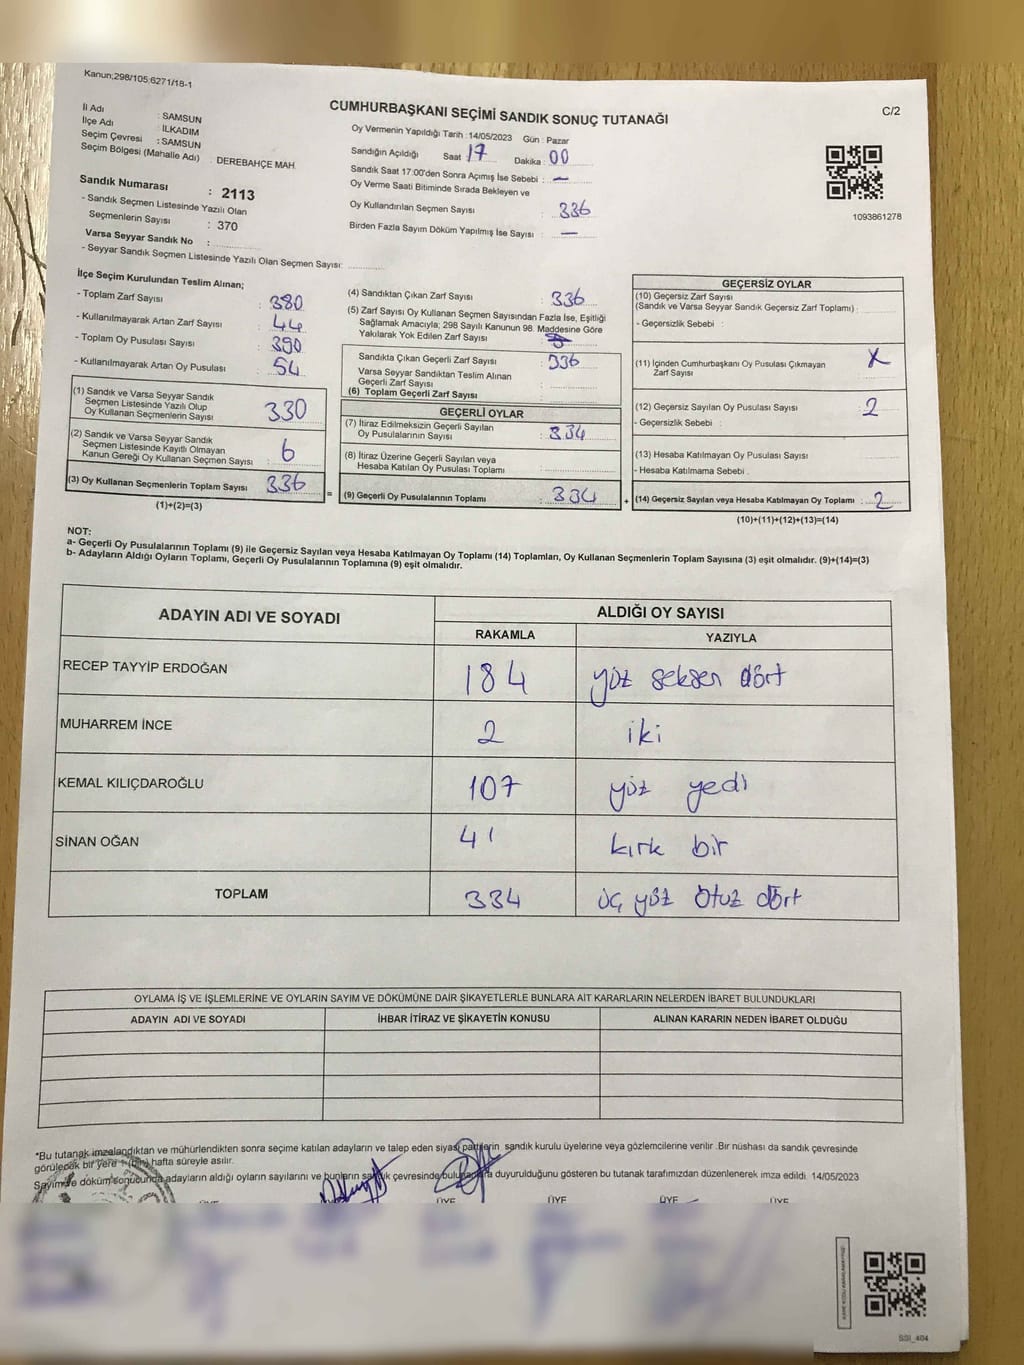 Kanun;298/105;6271/18-1
C/2
CUMHURBAŞKANI SEÇİMİ SANDIK SONUÇ TUTANAĞI
İl Adı : SAMSUN
İlçe Adı : İLKADIM
Seçim Çevresi : SAMSUN
Seçim Bölgesi (Mahalle Adı) : DEREBAHÇE MAH.
Sandık Numarası : 2113
- Sandık Seçmen Listesinde Yazılı Olan
Seçmenlerin Sayısı : 370
Varsa Seyyar Sandık No :
- Seyyar Sandık Seçmen Listesinde Yazılı Olan Seçmen Sayısı:
Oy Vermenin Yapıldığı Tarih :14/05/2023 Gün : Pazar
Sandığın Açıldığı Saat : 17 Dakika : 00
Sandık Saat 17:00'den Sonra Açımış İse Sebebi : —
Oy Verme Saati Bitiminde Sırada Bekleyen ve
Oy Kullandırılan Seçmen Sayısı : 336
Birden Fazla Sayım Döküm Yapılmış İse Sayısı : —
1093861278
İlçe Seçim Kurulundan Teslim Alınan;
- Toplam Zarf Sayısı : 380
- Kullanılmayarak Artan Zarf Sayısı : 44
- Toplam Oy Pusulası Sayısı : 390
- Kullanılmayarak Artan Oy Pusulası : 54
(1) Sandık ve Varsa Seyyar Sandık
Seçmen Listesinde Yazılı Olup
Oy Kullanan Seçmenlerin Sayısı : 330
(2) Sandık ve Varsa Seyyar Sandık
Seçmen Listesinde Kayıtlı Olmayan
Kanun Gereği Oy Kullanan Seçmen Sayısı : 6
(3) Oy Kullanan Seçmenlerin Toplam Sayısı : 336
(1)+(2)=(3)
=
(4) Sandıktan Çıkan Zarf Sayısı : 336
(5) Zarf Sayısı Oy Kullanan Seçmen Sayısından Fazla İse, Eşitliği
Sağlamak Amacıyla; 298 Sayılı Kanunun 98. Maddesine Göre
Yakılarak Yok Edilen Zarf Sayısı :
Sandıkta Çıkan Geçerli Zarf Sayısı : 336
Varsa Seyyar Sandıktan Teslim Alınan
Geçerli Zarf Sayısı :
(6) Toplam Geçerli Zarf Sayısı :
GEÇERLİ OYLAR
(7) İtiraz Edilmeksizin Geçerli Sayılan
Oy Pusulalarının Sayısı : 334
(8) İtiraz Üzerine Geçerli Sayılan veya
Hesaba Katılan Oy Pusulası Toplamı :
(9) Geçerli Oy Pusulalarının Toplamı : 334
+
GEÇERSİZ OYLAR
(10) Geçersiz Zarf Sayısı
(Sandık ve Varsa Seyyar Sandık Geçersiz Zarf Toplamı) :
- Geçersizlik Sebebi :
(11) İçinden Cumhurbaşkanı Oy Pusulası Çıkmayan X
Zarf Sayısı
(12) Geçersiz Sayılan Oy Pusulası Sayısı : 2
- Geçersizlik Sebebi :
(13) Hesaba Katılmayan Oy Pusulası Sayısı :
- Hesaba Katılmama Sebebi .
(14) Geçersiz Sayılan veya Hesaba Katılmayan Oy Toplamı : 2
(10)+(11)+(12)+(13)=(14)
NOT:
a- Geçerli Oy Pusulalarının Toplamı (9) ile Geçersiz Sayılan veya Hesaba Katılmayan Oy Toplamı (14) Toplamları, Oy Kullanan Seçmenlerin Toplam Sayısına (3) eşit olmalıdır. (9)+(14)=(3)
b- Adayların Aldığı Oyların Toplamı, Geçerli Oy Pusulalarının Toplamına (9) eşit olmalıdır.
ADAYIN ADI VE SOYADI ALDIĞI OY SAYISI
RAKAMLA YAZIYLA
RECEP TAYYİP ERDOĞAN 184 yüz seksen dört
MUHARREM İNCE 2 iki
KEMAL KILIÇDAROĞLU 107 yüz yedi
SİNAN OĞAN 41 kırk bir
TOPLAM 334 üç yüz otuz dört
OYLAMA İŞ VE İŞLEMLERİNE VE OYLARIN SAYIM VE DÖKÜMÜNE DAİR ŞİKAYETLERLE BUNLARA AİT KARARLARIN NELERDEN İBARET BULUNDUKLARI
ADAYIN ADI VE SOYADI İHBAR İTİRAZ VE ŞİKAYETİN KONUSU ALINAN KARARIN NEDEN İBARET OLDUĞU
*Bu tutanak imzalandıktan ve mühürlendikten sonra seçime katılan adayların ve talep eden siyasi partilerin sandık kurulu üyelerine veya gözlemcilerine verilir .Bir nüshası da sandık çevresinde
görülecek bir yere 1 (bir) hafta süreyle asılır.
Sayım ve döküm sonucunda adayların aldığı oyların sayılarını ve bunların sandık çevresinde bulunanlara duyurulduğunu gösteren bu tutanak tarafımızdan düzenlenerek imza edildi. 14/05/2023
ÜYE ÜYE ÜYE ÜYE ÜYE
SSI_404